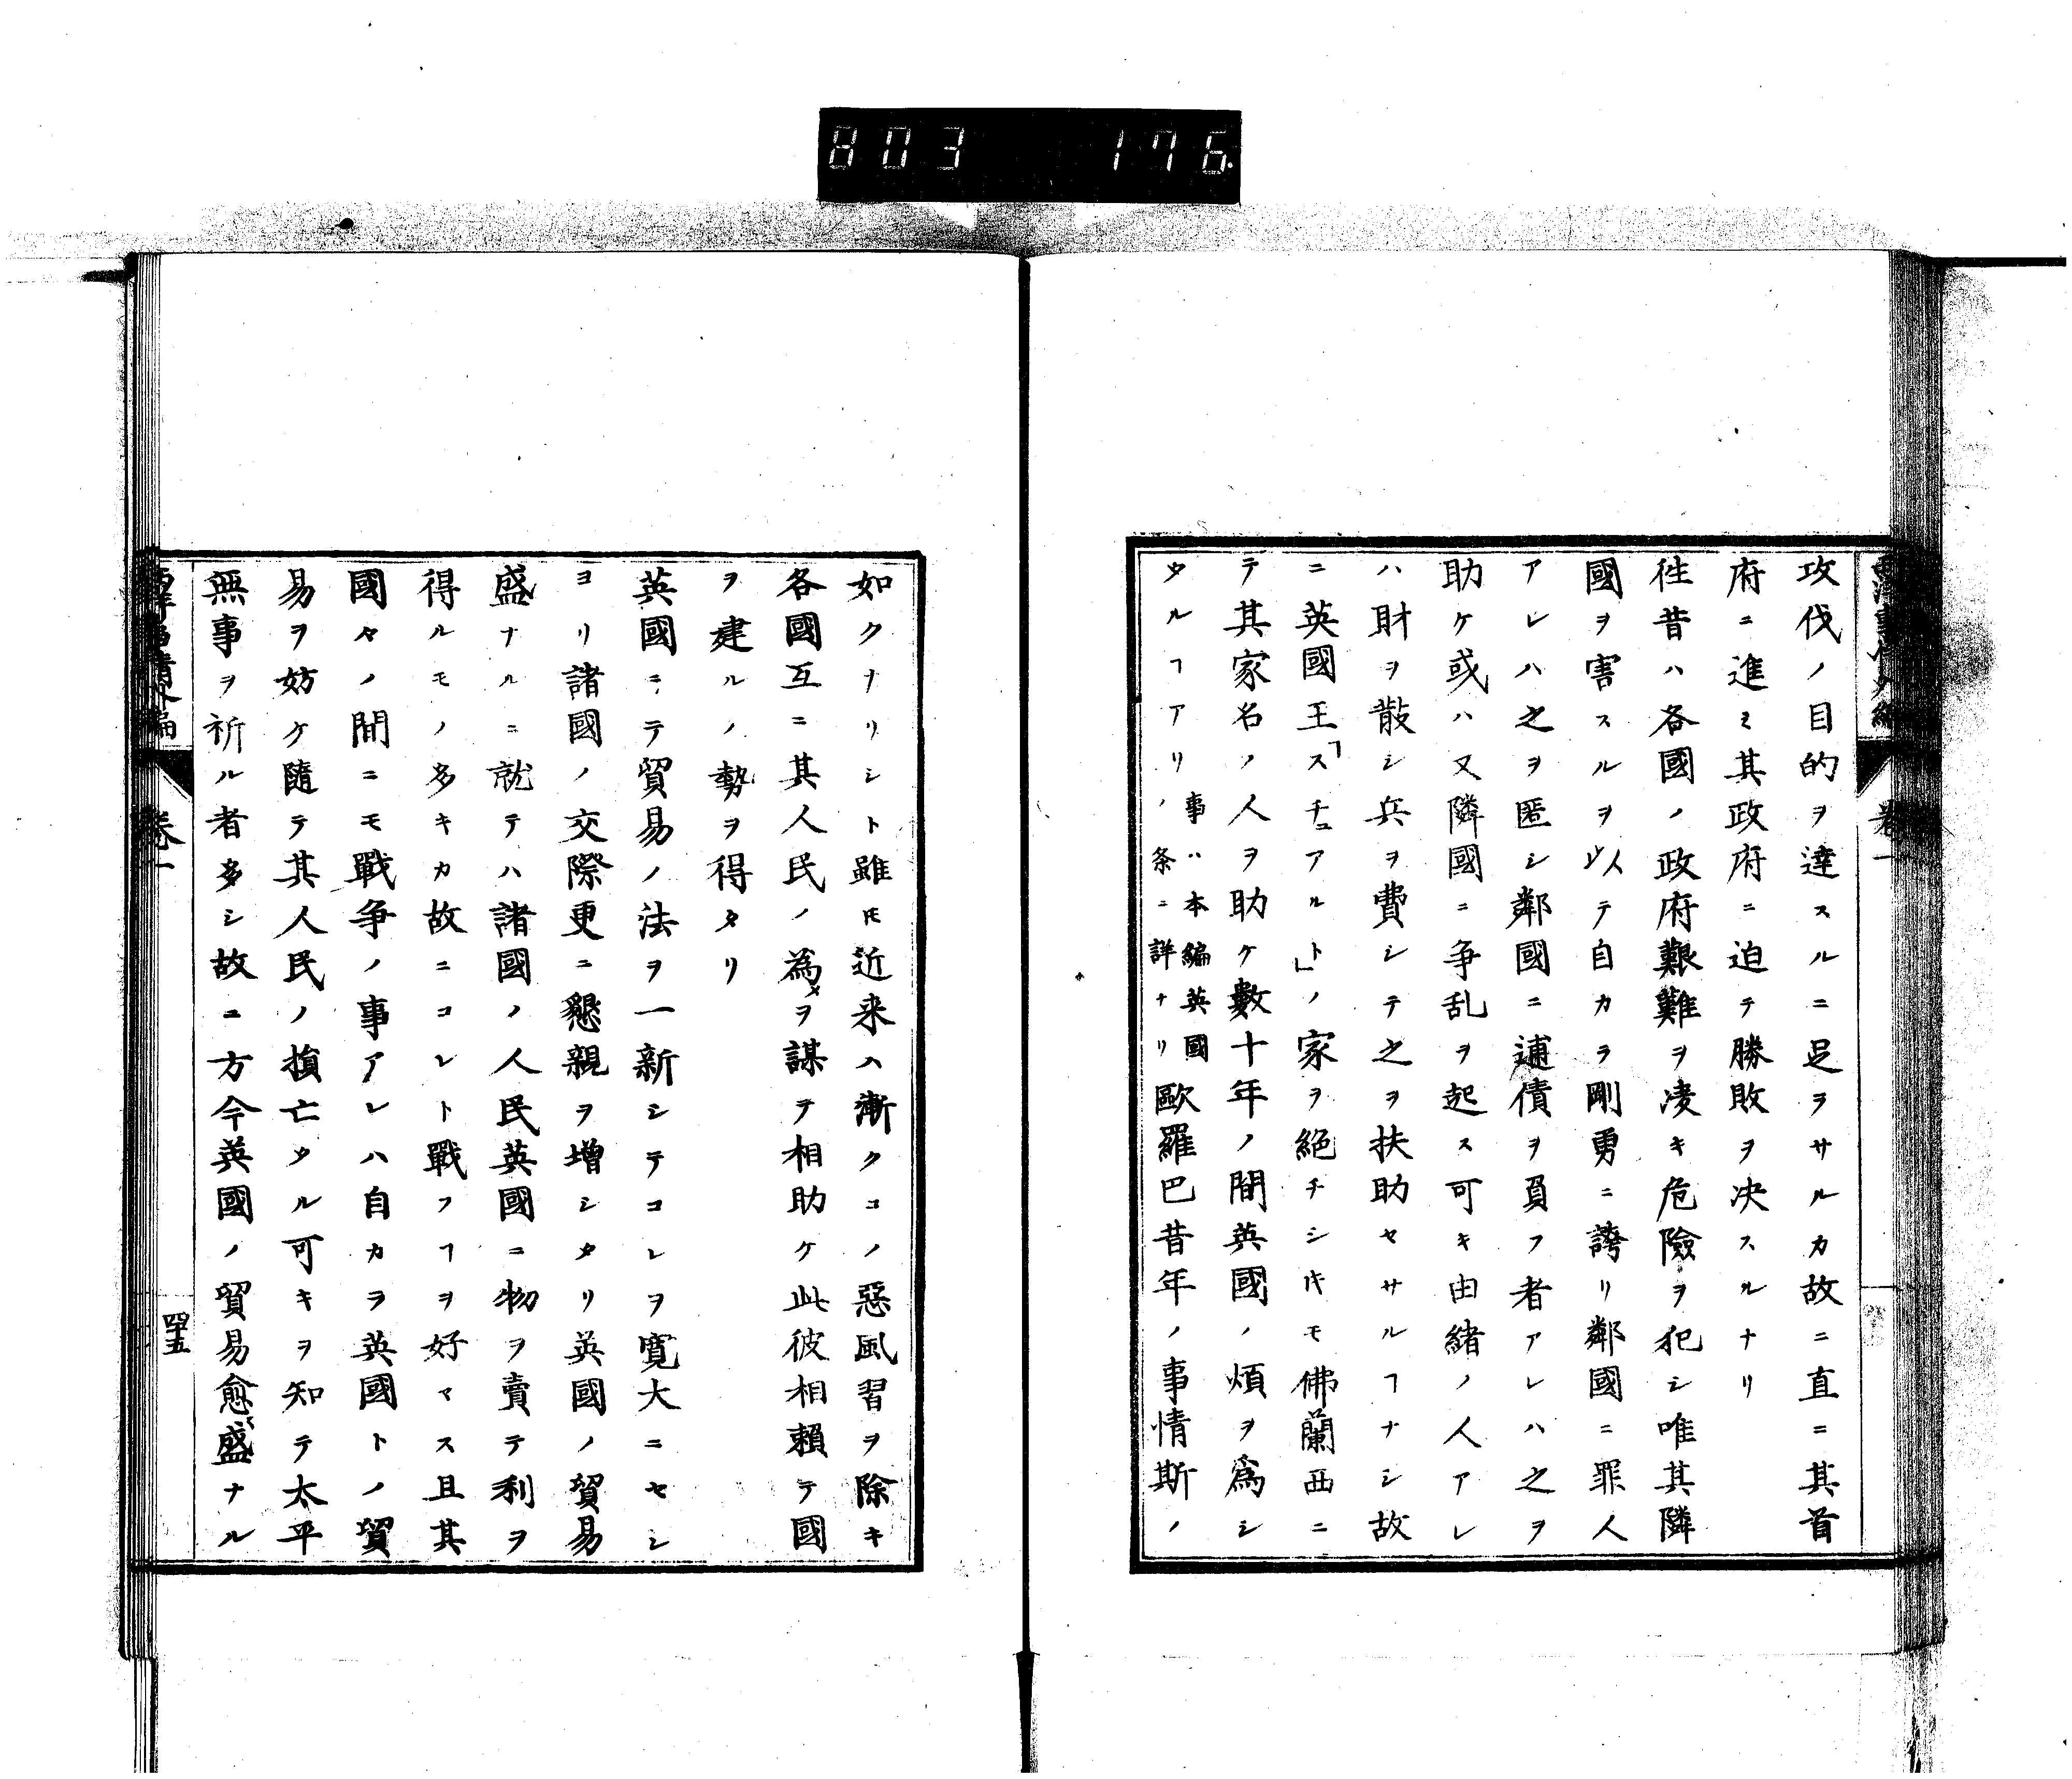 803 176
攻伐ノ目的ヲ達スルニ足ヲサルカ故ニ直ニ其首
府ニ進ミ其政府ニ迫テ勝敗ヲ决スルナリ
徃昔ハ各國ノ政府艱難ヲ凌キ危險ヲ犯シ唯其隣
國ヲ害スルヲ以テ自カラ剛勇ニ誇リ鄰國ニ罪人
アレハ之ヲ匿シ鄰國ニ逋債ヲ負フ者アレハ之ヲ
助ケ或ハ又隣國ニ争乱ヲ起ス可キ由緒ノ人アレ
ハ財ヲ散シ兵ヲ費シテ之ヲ扶助セサルヿナシ故
ニ英國王「スチュアルト」ノ家ヲ絶チシ𪜈モ佛蘭西ニ
テ其家名ノ人ヲ助ケ數十年ノ間英國ノ煩ヲ爲シ
タルヿアリ事ハ本編英國ノ条ニ詳ナリ歐羅巴昔年ノ事情斯ノ
如クナリシト雖𪜈近来ハ漸クコノ惡風習ヲ除キ
各國互ニ其人民ノ為メヲ謀テ相助ケ此彼相賴テ國
ヲ建ルノ勢ヲ得タリ
英國ニテ貿易ノ法ヲ一新シテコレヲ寛大ニセシ
ヨリ諸國ノ交際更ニ懇親ヲ増シタリ英國ノ貿易
盛ナルニ就テハ諸國ノ人民英國ニ物ヲ賣テ利ヲ
得ルモノ多キカ故ニコレト戰フヿヲ好マス且其
國々ノ間ニモ戰争ノ事アレハ自カラ英國トノ貿
易ヲ妨ケ隨テ其人民ノ損亡タル可キヲ知テ太平
無事ヲ祈ル者多シ故ニ方今英國ノ貿易愈盛ナル
卷一
四十五